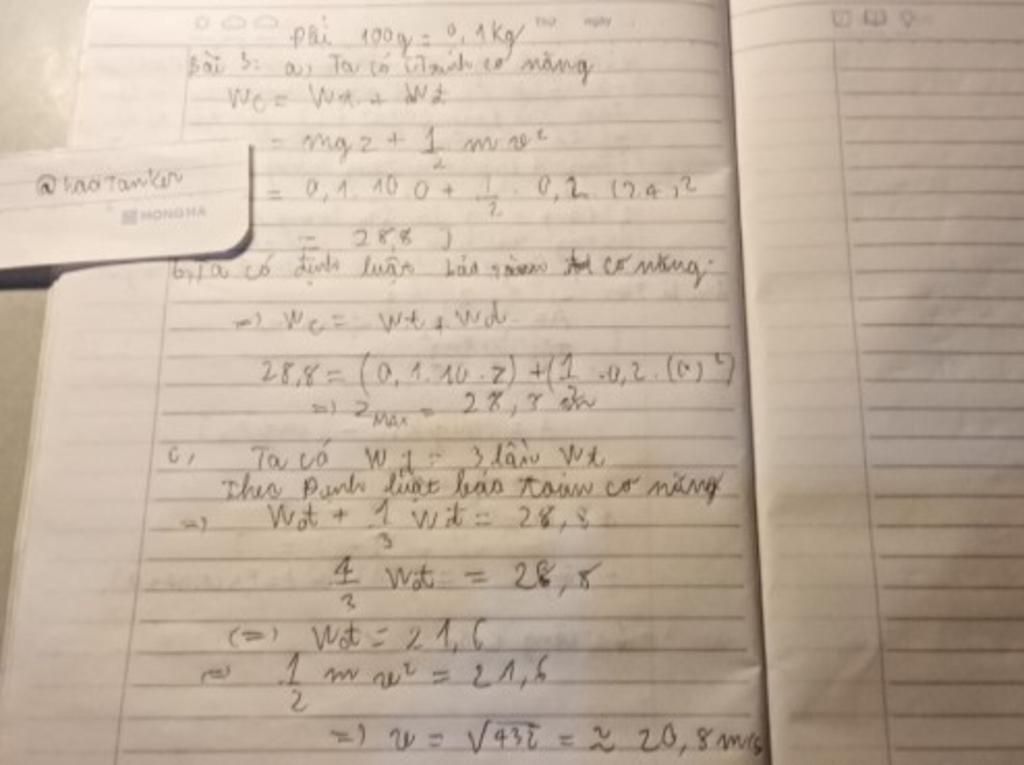 Thứ ngày
Đổi 100g = 0,1kg
Bài 3: a, Ta có cơ năng
Wc = Wđ + Wt
= mgz + 1/2 m v²
@baoTanker
HONG HA
= 0,1.10 0 + 1/2 0,1 (24)²
= 28,8 J
b, Ta có định luật bảo toàn cơ năng:
=> Wc = Wt + Wđ
28,8 = (0,1.10.z) + (1/2 .0,1.(0)²)
=> zMAX = 28,8 m
c, Ta có Wđ = 3 lần Wt
Theo Định luật bảo toàn cơ năng
=> Wđ + 1/3 Wđ = 28,8
4/3 Wđ = 28,8
(=) Wđ = 21,6
=> 1/2 m v² = 21,6
=> v = √432 = ≈ 20,8 m/s